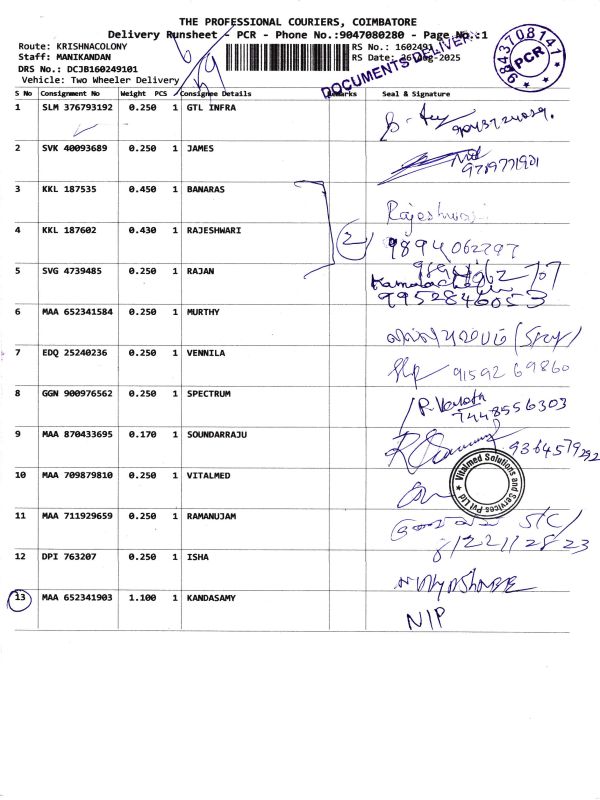 THE PROFESSIONAL COURIERS, COIMBATORE
Delivery Runsheet - PCR - Phone No.:9047080280 - Page No.:1
Route: KRISHNACOLONY
Staff: MANIKANDAN
DRS No.: DCJB160249101
Vehicle: Two Wheeler Delivery
RS No.: 160249
RS Date: -2025
DOCUMENTS DELIVER
9843708141
PCR
S No Consignment No Weight PCS Consignee Details Remarks Seal & Signature
1 SLM 376793192 0.250 1 GTL INFRA
2 SVK 40093689 0.250 1 JAMES
9789771901
3 KKL 187535 0.450 1 BANARAS
Rajeshwari
4 KKL 187602 0.430 1 RAJESHWARI
2
9894062797
5 SVG 4739485 0.250 1 RAJAN
9952846053
6 MAA 652341584 0.250 1 MURTHY
7 EDQ 25240236 0.250 1 VENNILA
91592 69860
8 GGN 900976562 0.250 1 SPECTRUM
7448556303
9 MAA 870433695 0.170 1 SOUNDARRAJU
9364579292
10 MAA 709879810 0.250 1 VITALMED
Vitalmed Solutions and Services Pvt Ltd
11 MAA 711929659 0.250 1 RAMANUJAM
S/C/
12 DPI 763207 0.250 1 ISHA
13 MAA 652341903 1.100 1 KANDASAMY
N/P